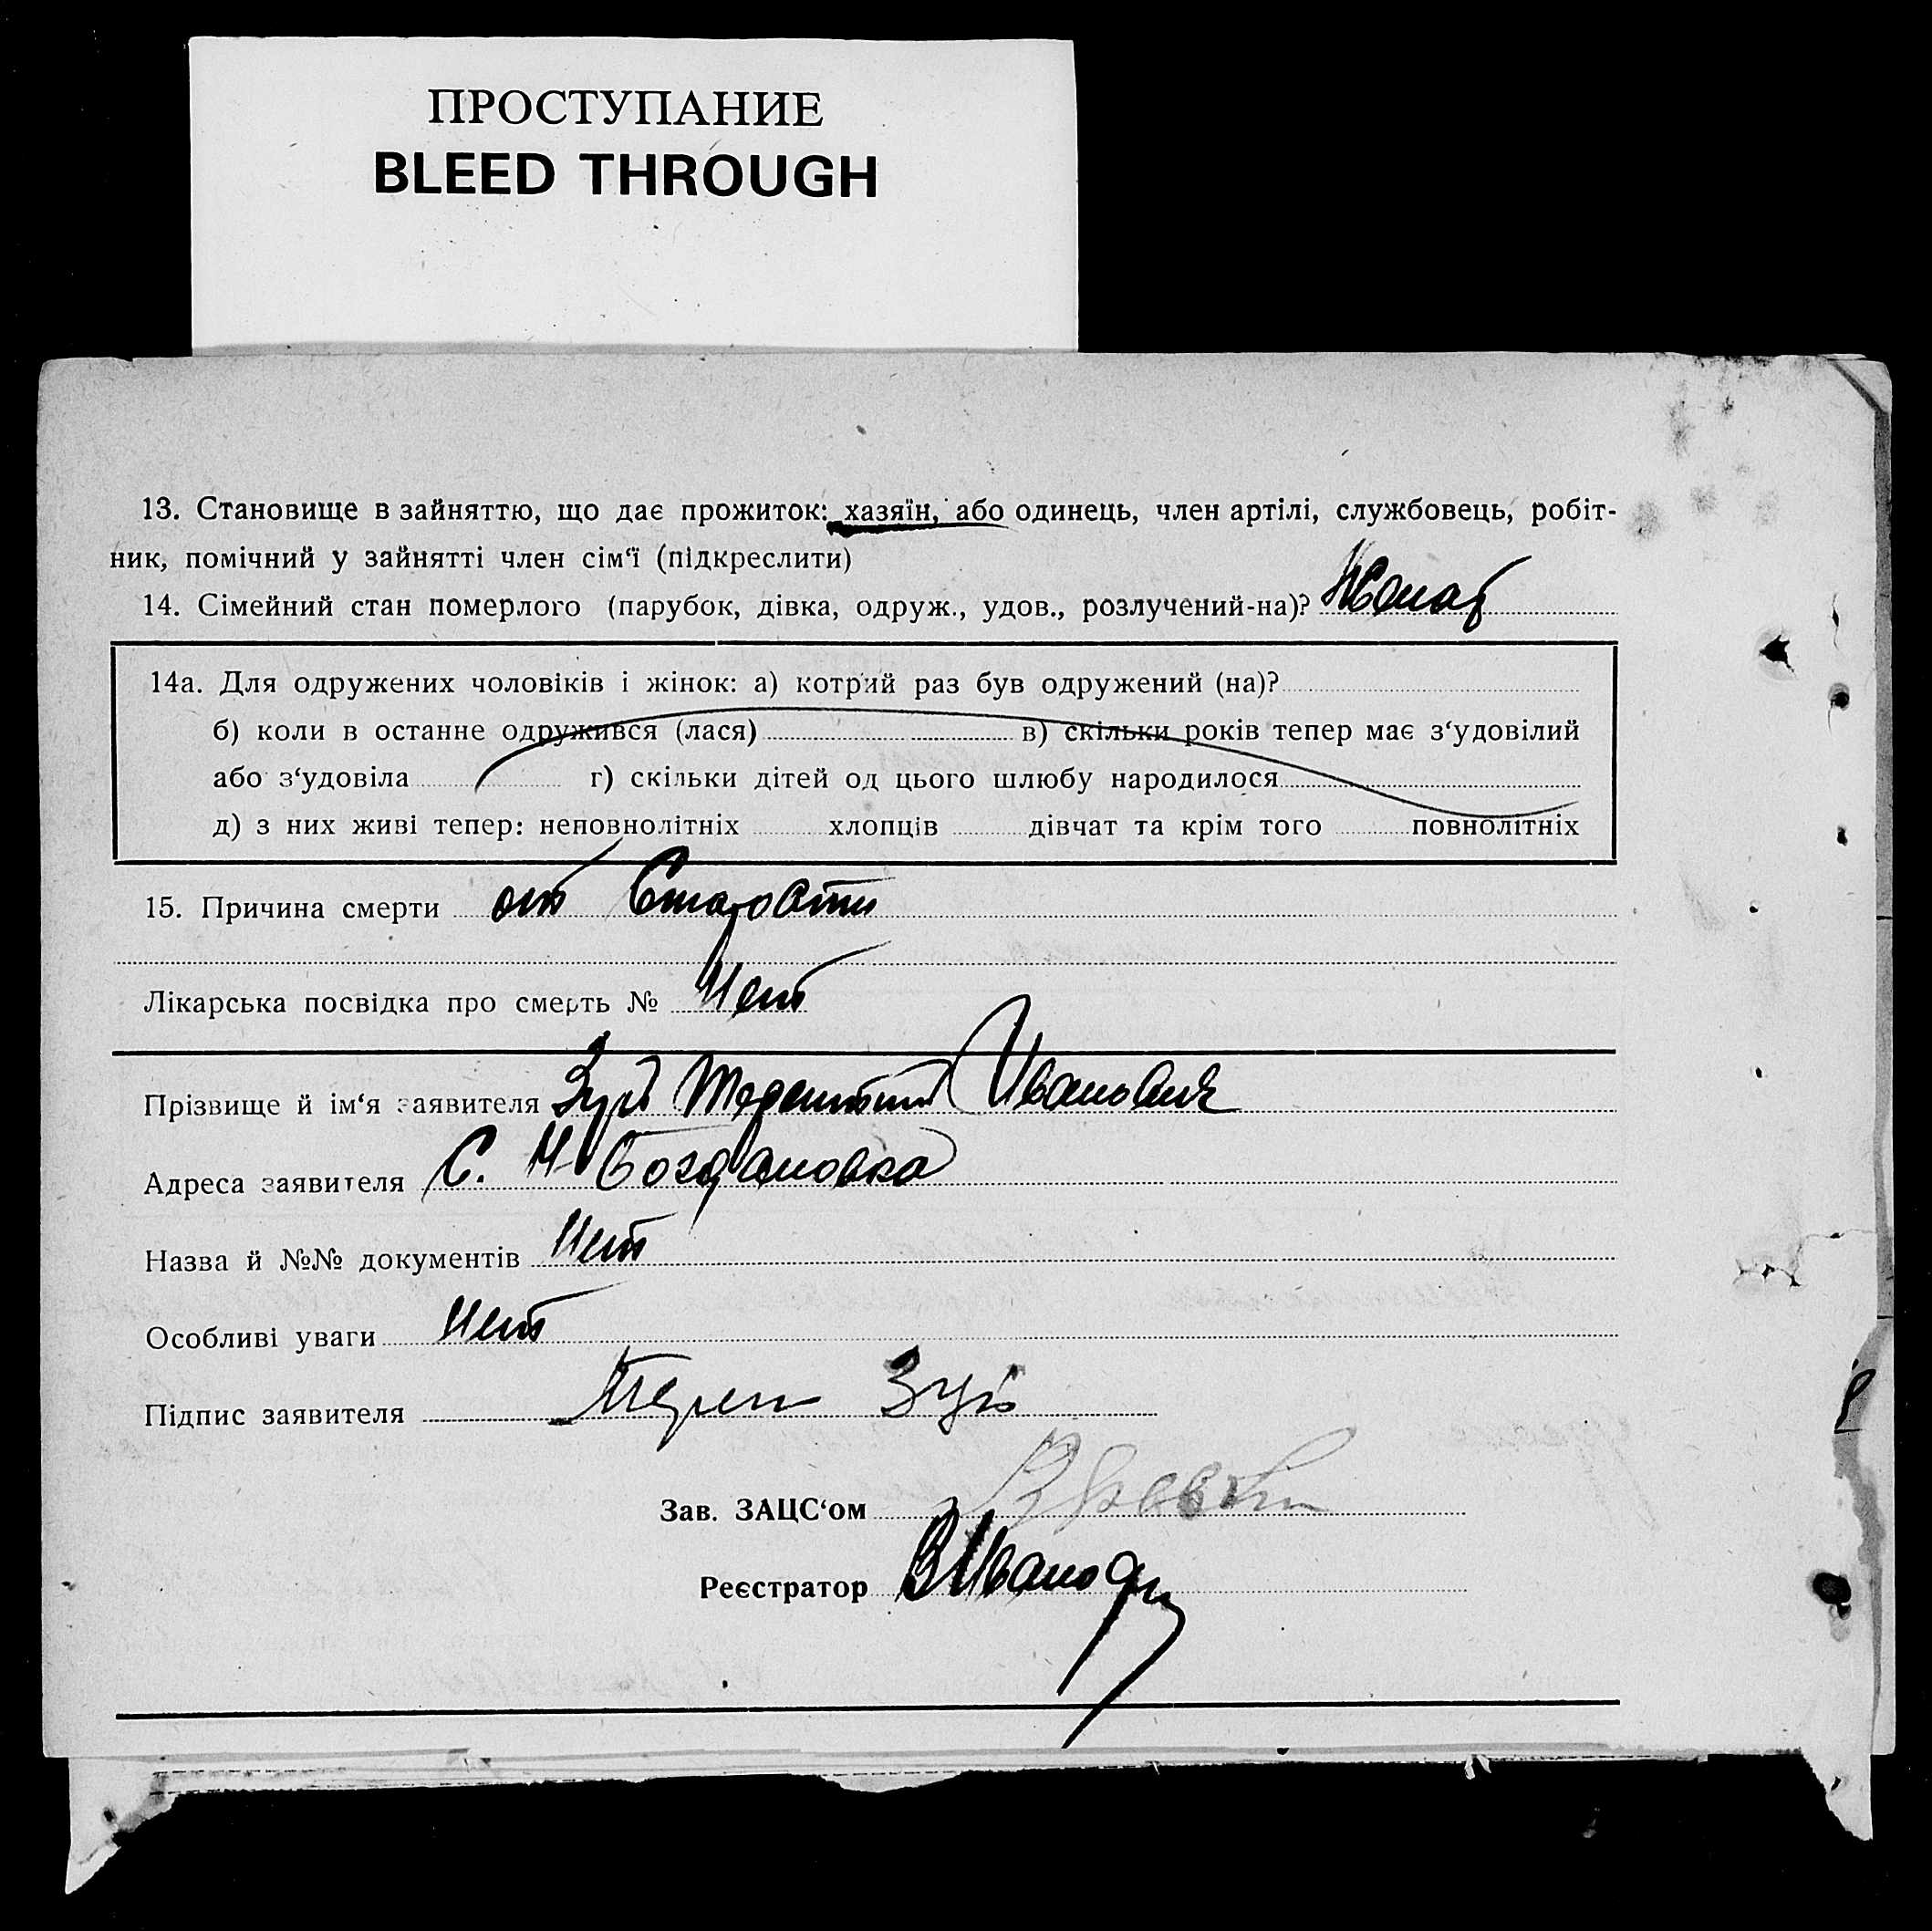 ПРОСТУПАНИЕ
BLEED THROUGH
13. Становище в зайняттю, що дає прожиток: хазяїн, або одинець, член артілі, службовець, робіт-
ник, помічний у зайнятті член сім‘ї (підкреслити)
14. Сімейний стан померлого (парубок, дівка, одруж., удов., розлучений-на)? Женат
14а. Для одружених чоловіків і жінок: а) котрий раз був одружений (на)?
б) коли в останне одружився (лася) в) скільки років тепер має з‘удовілий
або з‘удовіла г) скільки дітей од цього шлюбу народилося
д) з них живі тепер: неповнолітніх хлопців дівчат та крім того повнолітніх
15. Причина смерти от Старости
Лікарська посвідка про смерть № Нет
Прізвище й ім‘я заявителя Зуб Терентий Иванович
Адреса заявителя С. Н Богдановка
Назва й №№ документів Нет
Особливі уваги Нет
Підпис заявителя Терен Зуб
Зав. ЗАЦС‘ом
Реєстратор